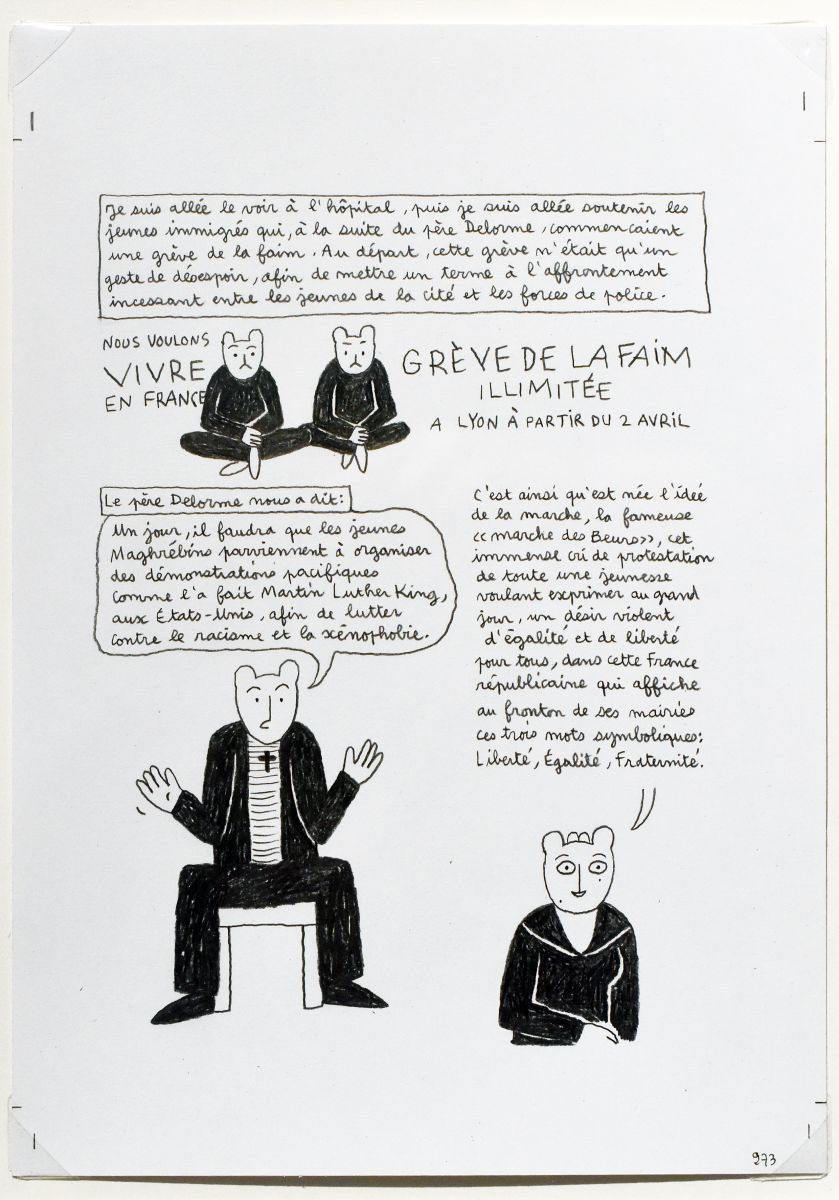 Je suis allée le voir à l'hôpital, puis je suis allée soutenir les
jeunes immigrés qui, à la suite du père Delorme, commencaient
une grève de la faim. Au départ, cette grève n'était qu'un
geste de désespoir, afin de mettre un terme à l'affrontement
incessant entre les jeunes de la cité et les forces de police.
NOUS VOULONS
VIVRE
EN FRANCE
GRÈVE DE LA FAIM
ILLIMITÉE
A LYON À PARTIR DU 2 AVRIL
Le père Delorme nous a dit:
Un jour, il faudra que les jeunes
Maghrébins parviennent à organiser
des démonstrations pacifiques
comme l'a fait Martin Luther King,
aux États-Unis, afin de lutter
contre le racisme et la xénophobie.
C'est ainsi qu'est née l'idée
de la marche, la fameuse
<<marche des Beurs>>, cet
immense cri de protestation
de toute une jeunesse
voulant exprimer au grand
jour, un désir violent
d'égalité et de liberté
pour tous, dans cette France
républicaine qui affiche
au fronton de ses mairies
ces trois mots symboliques:
Liberté, Égalité, Fraternité.
273